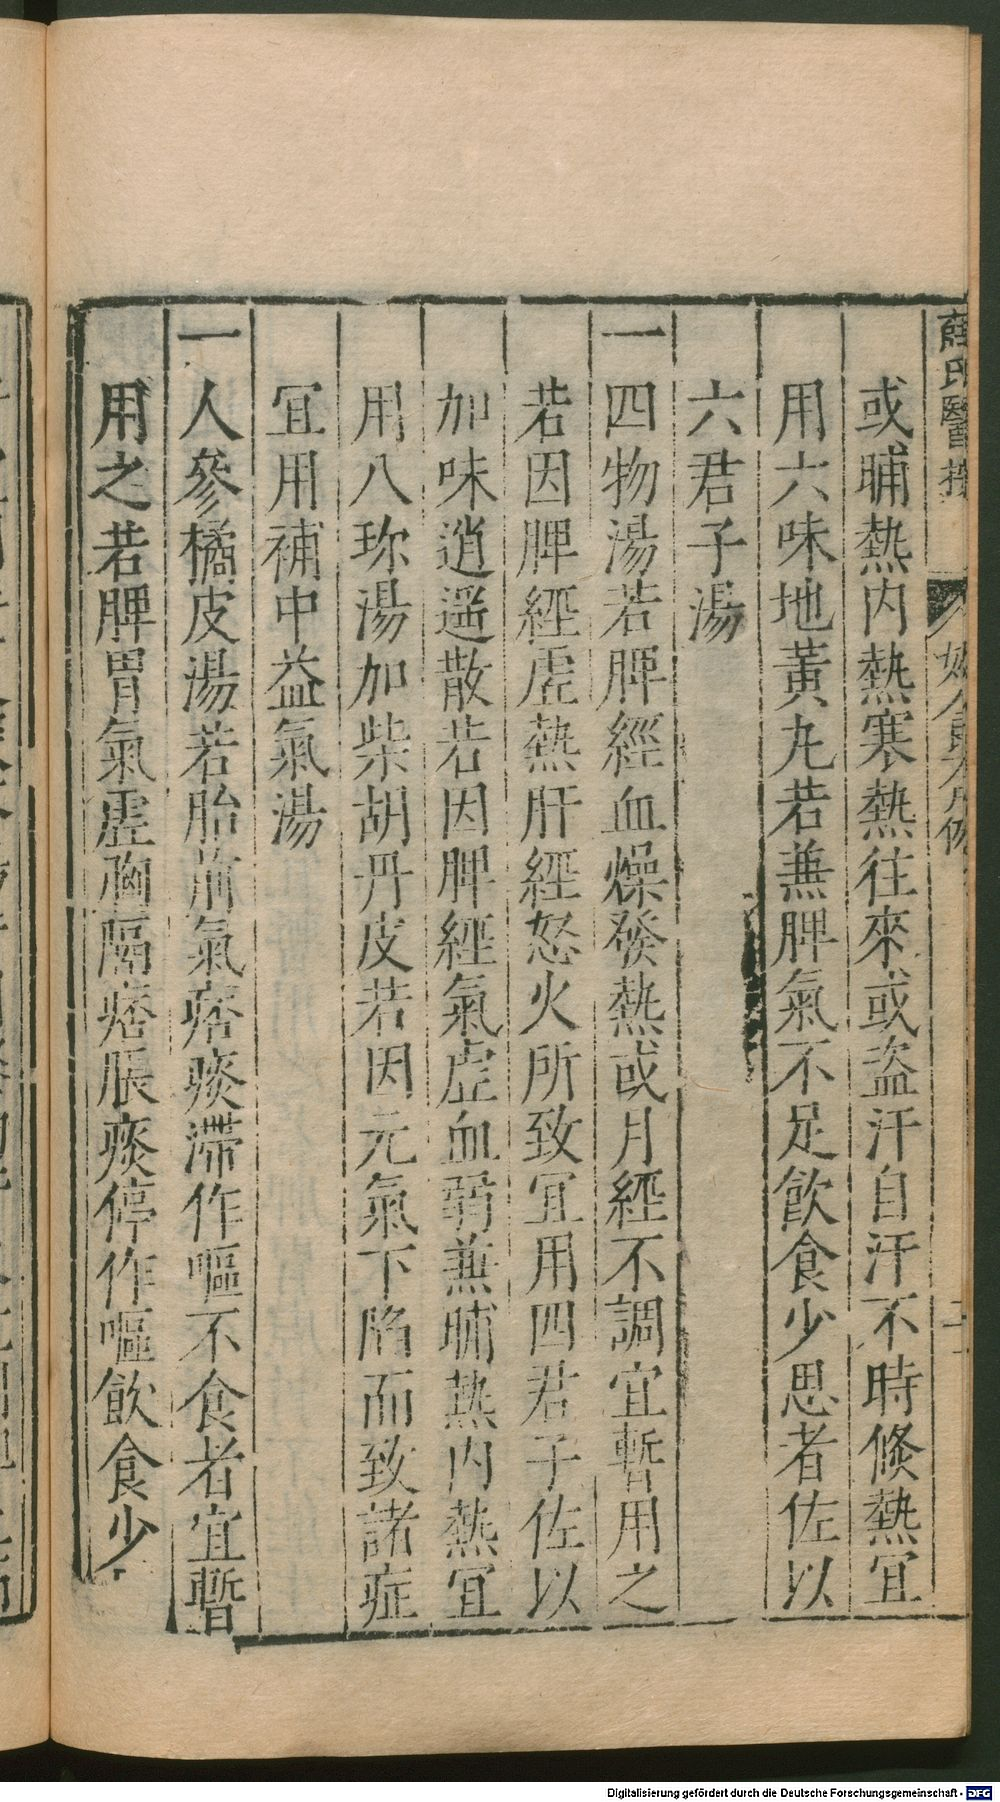 薛氏醫按
或晡熱内熱寒熱往來或盜汗自汗不時倏熱宜
用六味地黃丸若兼脾氣不足飲食少思者佐以
六君子湯
一四物湯若脾經血燥發熱或月經不調宜暫用之
若因脾經虛熱肝經怒火所致宜用四君子佐以
加味逍遥散若因脾經氣虛血弱兼晡熱内熱宜
用八珎湯加柴胡丹皮若因元氣下陷而致諸症
宜用補中益氣湯
一人參橘皮湯若胎前氣痞痰滯作嘔不食者宜暫
用之若脾胃氣虛胸膈痞脹痰停作嘔飲食少
Digitalisierung gefördert durch die Deutsche Forschungsgemeinschaft - DFG